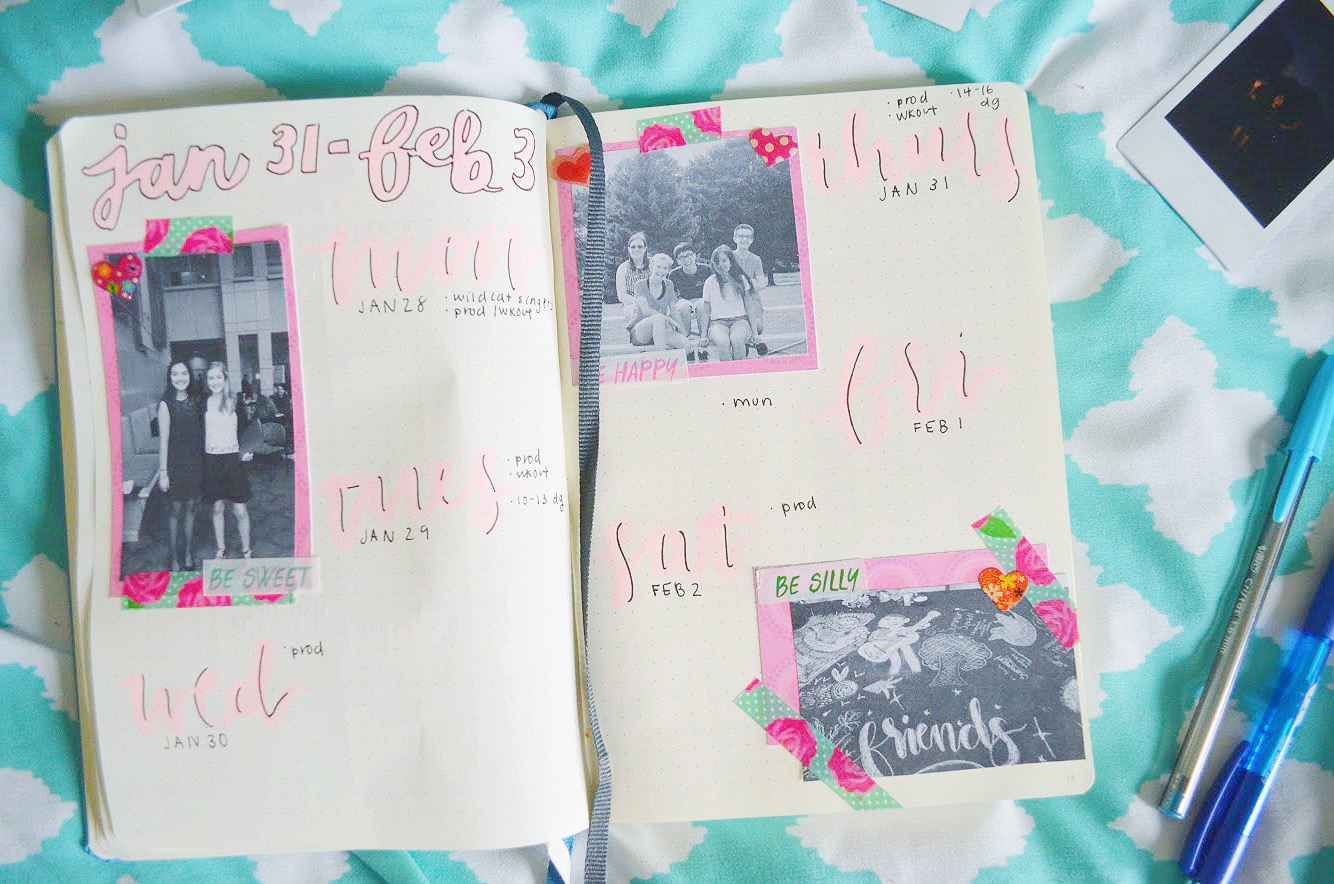 jan 31 - feb 3
mon
JAN 28
· wildcat singers
· prod / wkout
BE SWEET
tues
JAN 29
· prod
· wkout
· 10-13 dg
wed
· prod
JAN 30
· prod
· wkout
· 14-16
dg
thurs
JAN 31
E HAPPY
· mun
fri
FEB 1
sat
· prod
FEB 2
BE SILLY
friends